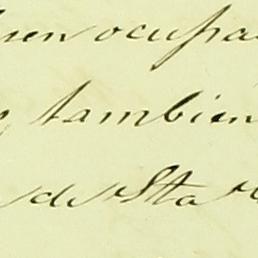 bien ocupa
, tambien
de Sta